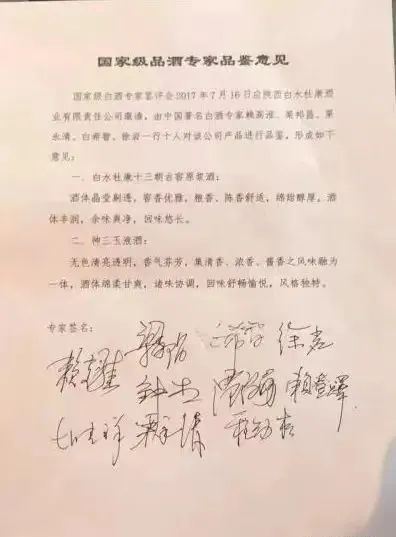 国家级品酒专家品鉴意见
国家级白酒专家鉴评会2017年7月16日应陕西白水杜康酒
业有限责任公司邀请，由中国著名白酒专家赖高淮、梁邦昌、栗
永清、白希智、徐岩一行十人对该公司产品进行品鉴，形成如下
意见：
一、白水杜康十三朝古窖原浆酒：
酒体晶莹剔透，窖香优雅，粮香、陈香舒适，绵甜醇厚，酒
体丰润，余味爽净，回味悠长。
二、神三玉液酒：
无色清亮透明，香气芬芳，集清香、浓香、酱香之风味融为
一体，酒体绵柔甘爽，诸味协调，回味舒畅愉悦，风格独特。
专家签名：
徐岩
赖登燡